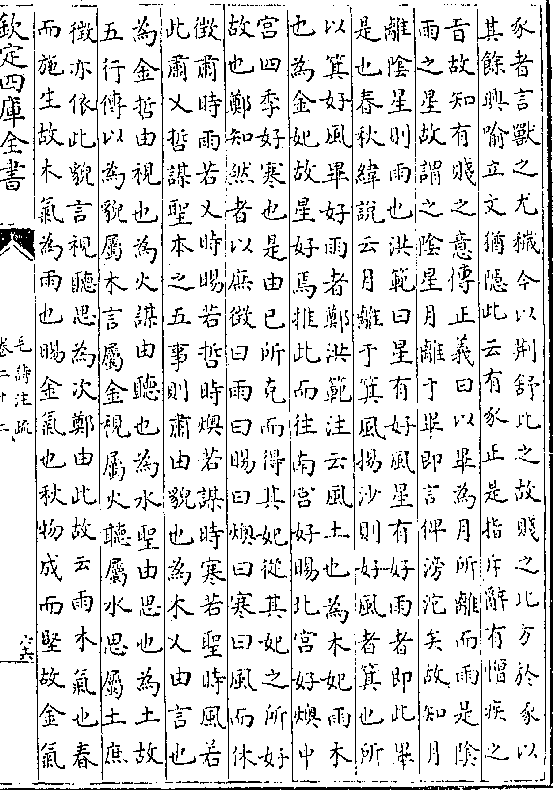 豕者言獸之尤穢今以荆舒比之故賤之比方於豕以
其餘興喻立文猶隱此云有豕正是指斥辭有憎疾之
旨故知有賤之意傳正義曰以畢為月所離而雨是陰
雨之星故謂之陰星月離于畢即言俾滂沱矣故知月
離陰星則雨也洪範曰星有好風星有好雨者即此畢
是也春秋緯說云月離于箕風揚沙則好風者箕也所
以箕好風畢好雨者鄭洪範注云風土也為木妃雨木
也為金妃故星好焉推此而往南宮好暘北宮好燠中
宮四季好寒也是由已所克而得其妃從其妃之所好
故也鄭知然者以庶徵曰雨曰暘曰燠曰寒曰風而休
徵肅時雨若乂時暘若哲時燠若謀時寒若聖時風若
此肅乂哲謀聖本之五事則肅由貌也為木乂由言也
為金哲由視也為火謀由聽也為水聖由思也為土故
五行傳以為貌屬木言屬金視屬火聽屬水思屬土庶
徵亦依此貌言視聽思為次鄭由此故云雨木氣也春
而施生故木氣為雨也暘金氣也秋物成而堅故金氣
欽定四庫全書
毛詩注疏
卷二十二